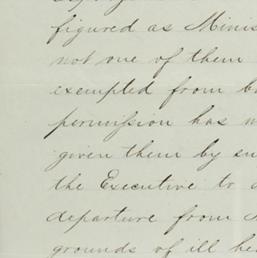 figured as Minis
not one of them
exempted from b
permission has n
given them by su
the Executive to
departure from
grounds of ill he